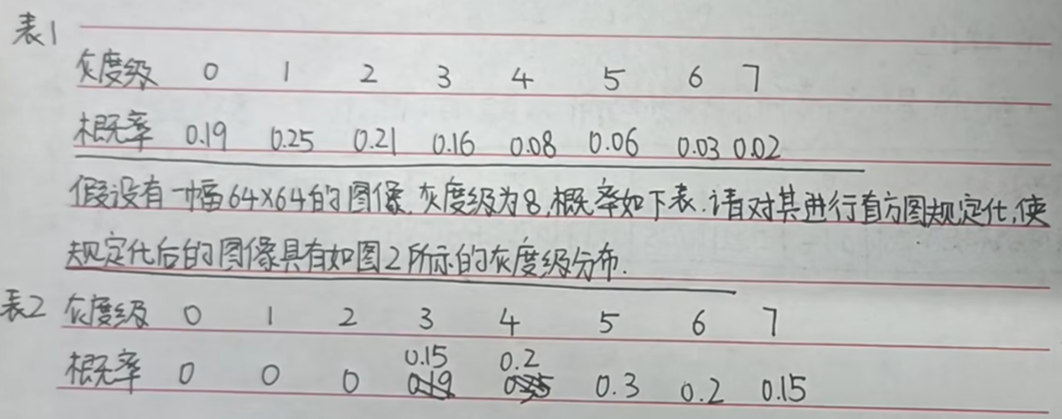 表1
灰度级 0 1 2 3 4 5 6 7
概率 0.19 0.25 0.21 0.16 0.08 0.06 0.03 0.02
假设有一幅64×64的图像,灰度级为8,概率如下表.请对其进行直方图规定化,使
规定化后的图像具有如图2所示的灰度级分布.
表2 灰度级 0 1 2 3 4 5 6 7
0.15 0.2
概率 0 0 0 0.3 0.2 0.15